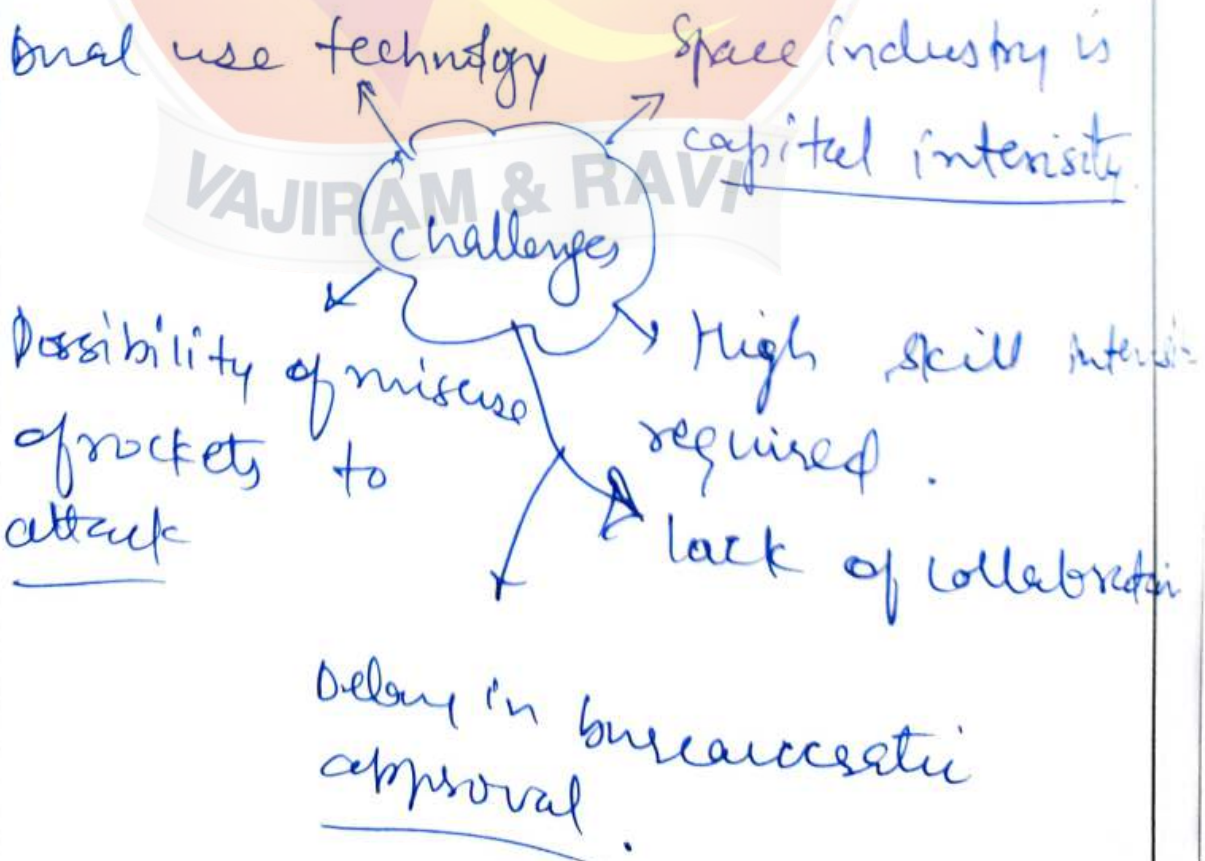 Dual use technolgy
Space industry is
capital intensity.
VAJIRAM & RAVI
challenges
Possibility of misuse
of rockets to
attack
High skill intensit
required.
lack of collabration
Delay in bureauccratic
approval.